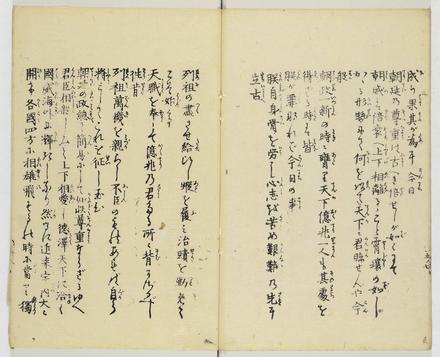 成り果其が為に今日
朝廷乃尊重は古へに倍せしが如くにて
朝威は倍衰へ上下相離るゝこと霄壌の如し
かゝる形勢にて何を以て天下に君臨せんや今
般
朝政一新の時に膺り天下億兆一人も其處を
得ざる時は皆
朕が罪なれば今日の事
朕自身骨を労し心志を苦め艱難乃先に
立古
列祖の盡させ給ひし蹤を履み治蹟を勤めて
こそ始て
天職を奉じて億兆乃君たる所に背かざるべし
往昔
列祖萬機を親らし不臣のものあれば自ら
将としてこれを征し玉ひ
朝廷の政総て簡易にして如此尊重ならざるゆへ
君臣相親しみて上下相愛し徳澤天下に洽く
國威海外に輝きしなり然るに近来宇内大に
開け各國四方に相雄飛するの時に當り獨